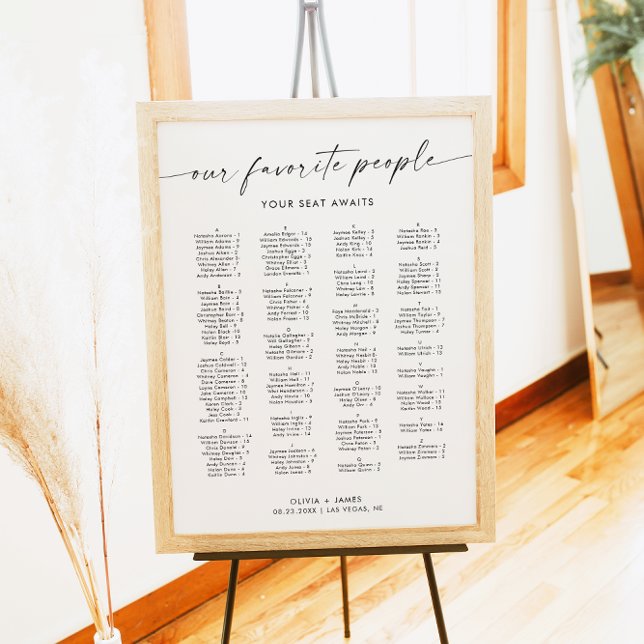 our favorite people
YOUR SEAT AWAITS
A
Natasha Aarons - 1
William Adams - 9
Jaymee Adams - 9
Joshua Allen - 2
Chris Alexander 5
Whitney Allen - 7
Haley Allen - 7
Andy Anderson - 2
B
Natasha Baillie - 5
William Barr - 4
Jaymee Barr - 4
Joshua Baird - 12
Christopher Barr - 8
Whitney Beston - 8
Haley Bell - 9
Nolan Black - 10
Kaitlin Blair - 13
Haley Boyd - 13
C
Jaymee Calder - 1
Joshua Caldwell - 12
Chris Cameron - 4
Whitney Cameron - 4
Dave Cameron - 8
Layne Cameron - 10
Jake Cameron - 10
Haley Campbell - 13
Karen Clark - 2
Haley Cook - 3
Jess Cook - 3
Kaitlin Crawford - 11
D
Natasha Davidson - 14
William Davison - 15
Chris Donald - 6
Whitney Douglas - 5
Haley Dow - 5
Andy Duncan - 4
Nolan Dunn - 4
Kaitlin Dunn - 4
E
Amelia Edgar - 14
William Edwards - 15
Jaymee Edwards - 15
Joshua Eggo - 5
Christopher Eggo - 5
Whitney Elliot - 5
Grace Ellmers - 2
Landon Everetts - 1
F
Natasha Falconer - 2
William Falconer - 2
Chris Fisher - 6
Whitney Fisher - 6
Andy Forrest - 10
Nolan Fraser - 13
G
Natalie Gallagher - 2
Will Gallagher - 2
Haley Gibson - 4
Natasha Gilmore - 2
William Gordon - 2
H
Natasha Hall - 11
William Hall - 11
Jaymee Hamilton - 7
Whit Henderson - 3
Andy Howie - 10
Nolan Houston - 8
I
Natasha Inglis - 4
William Inglis - 4
Haley Irvine - 13
Andy Irvine - 14
J
Natasha Jackson - 2
Jaymee Johnston - 7
Haley Johnston - 9
Andy Jones - 8
Nolan Jones - 8
K
Jaymee Kelley - 5
Joshua Kelley - 5
Andy King - 10
Nolan Kirk - 14
Kaitlin Knox - 4
L
Natasha Laird - 2
William Laird - 2
Chris Lang - 10
Whitney Law - 8
Haley Lawrie - 5
M
Faye Manderald - 3
Chris McBride - 1
Whitney Mitchell - 8
Haley Morgan - 9
Andy Morgan - 9
N
Natasha Neil - 4
William Neil - 4
Whitney Nesbit 6
Haley Nesbit - 6
Andy Noble - 15
Nolan Noble - 15
O
Jaymee O'Leary - 10
Joshua O'Leary - 10
Haley Olsen - 8
Andy Orr - 2
P
Natasha Park - 9
William Park - 9
Jaymee Paterson - 5
Joshua Paterson - 1
Chris Paton - 3
Whitney Paton - 3
Q
Natasha Quinn - 5
William Quinn - 5
R
Natasha Rae - 3
William Rankin - 3
Jaymee Rankin - 3
S
Natasha Scott - 2
William Scott - 2
Jaymee Sharp - 4
Haley Spencer - 5
Andy Spencer - 5
Nolan Stewart - 13
T
Natasha Tait - 1
William Taylor - 9
Jaymee Thompson - 7
Joshua Thompson - 7
Haley Turner - 2
U
Natasha Ulrich - 13
William Ulrich - 13
V
Natasha Vaughn - 1
William Vaughn - 1
W
Natasha Walker - 2
William Wallace - 1
Nolan Wood - 13
Kaitlin Wood - 13
Y
Natasha Yates - 14
William Yates - 14
Z
Natasha Zimmers - 2
William Zimmers - 4
Jaymee Zimmers - 4
OLIVIA + JAMES
08.23.20XX | LAS VEGAS, NE